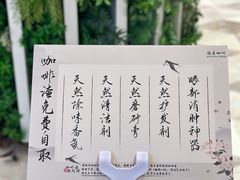 咖啡渣免费自取
天然除味香氛
天然清洁剂
天然磨砂膏
天然护发剂
眼部消肿神器